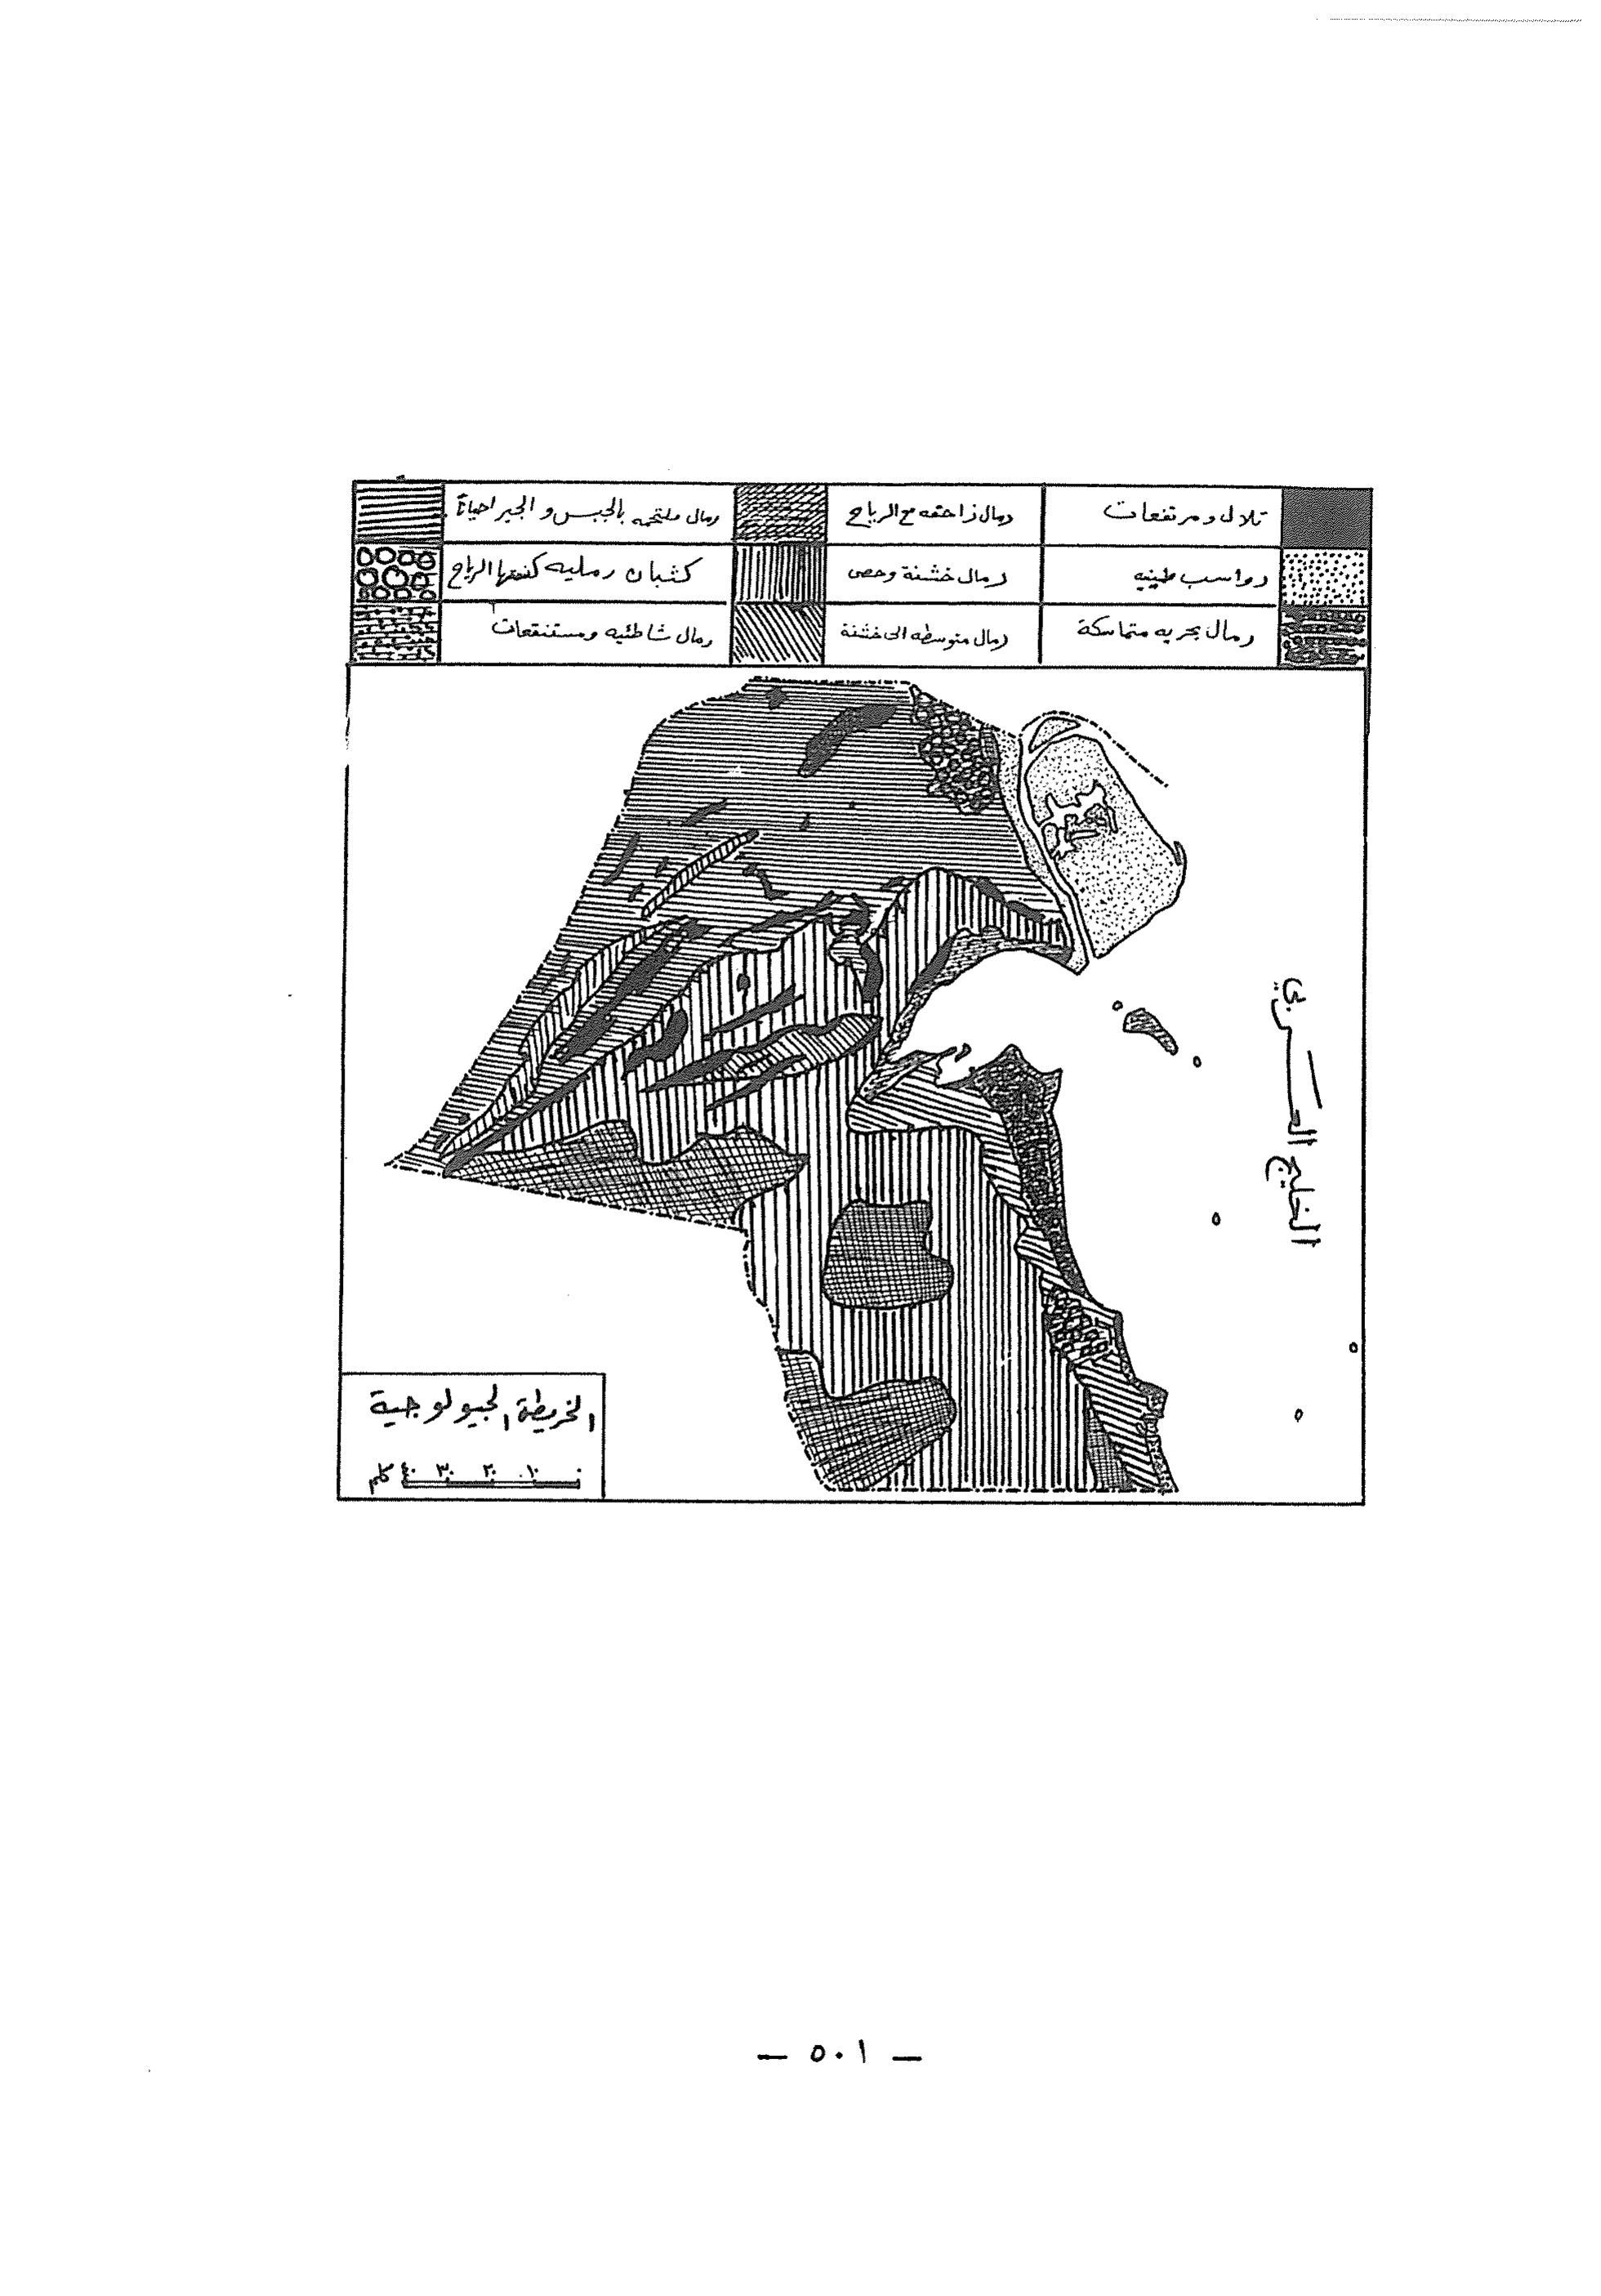 تلال ومرتفعات
رمال زاحفه مع الرياح
رمال ملتحمه بالجبس و الجير احياناً
رواسب طينيه
رمال خشنة وحصى
كثبان رمليه كنستها الرياح
رمال بحريه متماسكة
رمال متوسطه الى خشنة
رمال شاطئيه ومستنقعات
الخليج العربي
الخريطة الجيولوجية
٠ ١٠ ٢٠ ٣٠ ٤٠ كلم
— ٥٠١ —